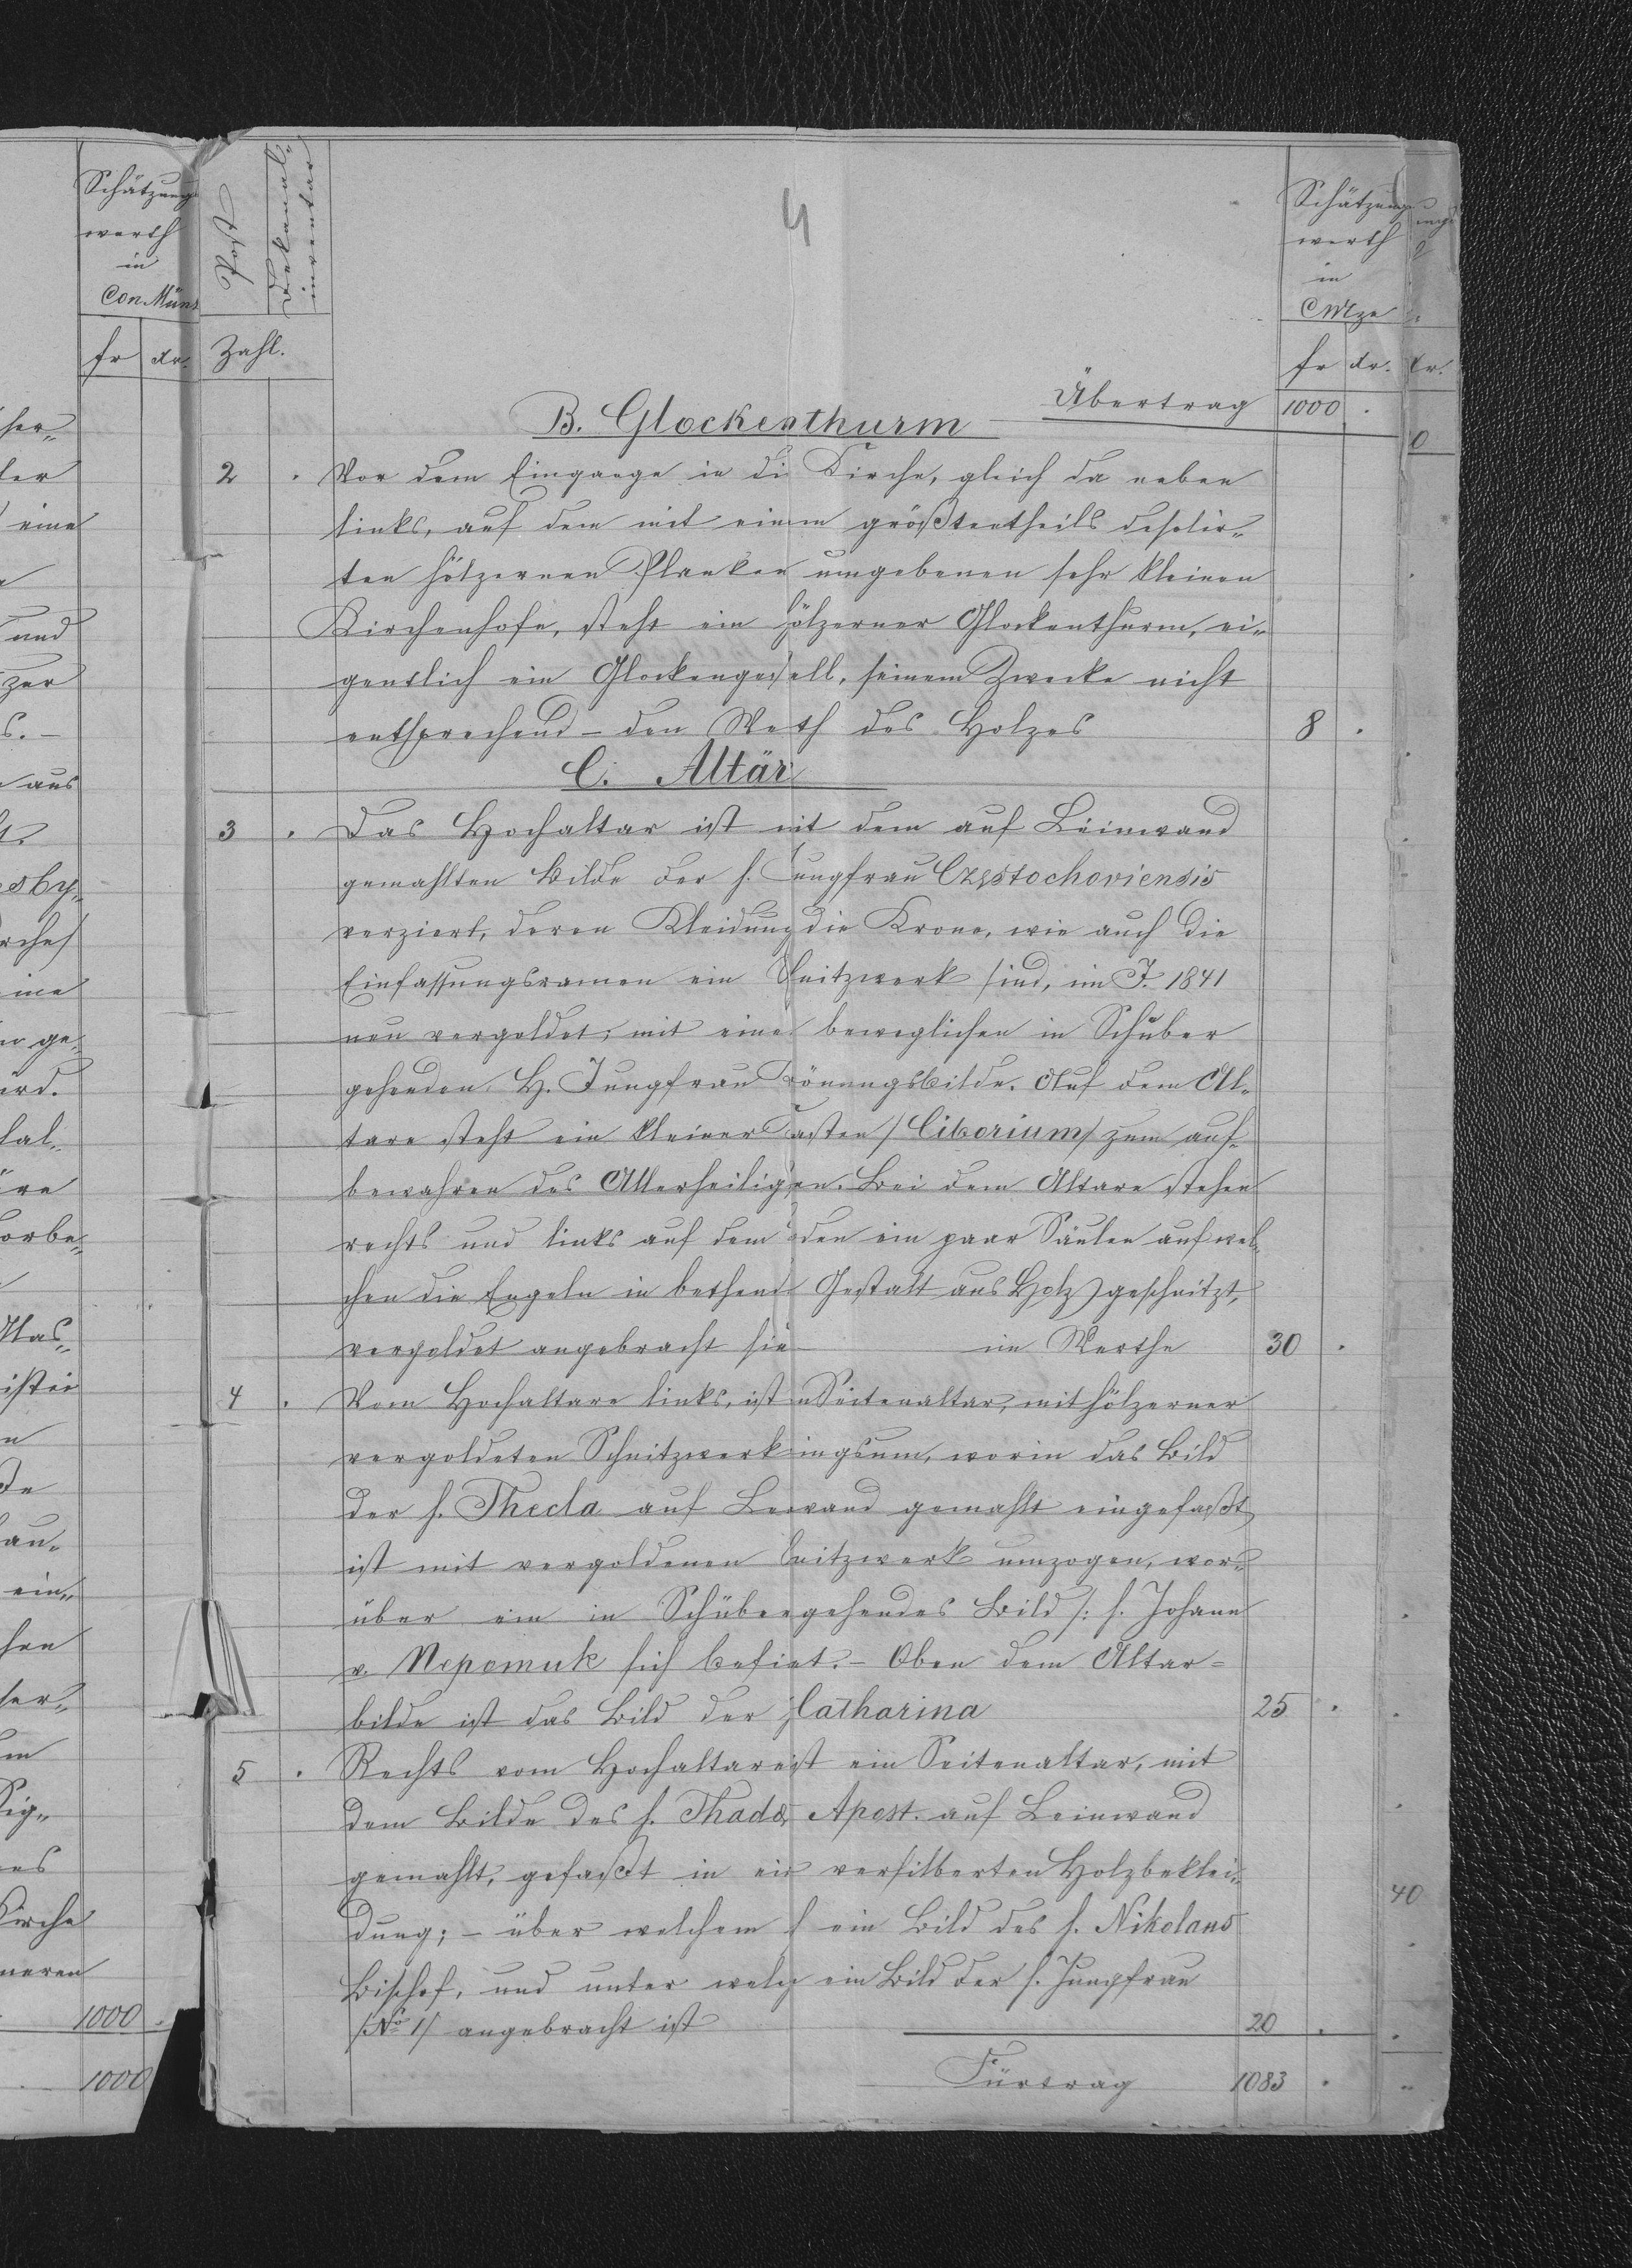 4
Post
Dekanal-
inventar
Zahl.
Schätzungs
werth
in
CMze
fr xr.
Übertrag 1000 .
B. Glockenthurm
2 . Vor dem Eingange in di Kirche, gleich da neben
links, auf dem mit einem größtentheils desolir„
ten hölzernen Planken umgebenen sehr kleinen
Kirchenhofe, steht ein hölzerner Glockenthurm, ei„
gentlich ein Glockengestell, seinem Zwecke nicht
entsprechend – den Werth des Holzes 8 .
C. Altär
3 . Das Hochaltar ist mit dem auf Leinwand
gemahlten Bilde der h. Jungfrau Częstochoviensis
verziert, deren Kleidung die Krone, wie auch die
Einfassungsramen ein Schnitzwerk sind, im J. 1841
neu vergoldet; mit eine beweglichen in Schuber
gehenden H. Jungfrau Krönungsbilde. Auf dem Al„
tare steht ein kleiner Kasten /Ciborium/ zum auf„
bewahren des Allerheiligsten. Bei dem Altare stehen
rechts und links auf dem Boden ein paar Säulen auf wel„
chen die Engeln in bethend Gestalt aus Holz geschnitzt,
vergoldet angebracht sin im Werthe 30 .
4 . Vom Hochaltare links, ist in Seitenaltar, mit hölzerner
vergoldeten Schnitzwerk ringsum, worin das Bild
der h. Thecla auf Leinwand gemahlt eingefaßt
ist mit vergoldenen Schnitzwerk umzogen, wor„
über ein in Schüber gehendes Bild /: h. Johann
v. Nepomuk sich befindet. – Oben dem Altar=
bilde ist das Bild der h. Catharina 25 .
5 . Rechts vom Hochaltare ist ein Seitenaltar, mit
dem Bilde des h. Thadä Apost. auf Leinwand
gemahlt, gefaßt in ein versilberten Holzbeklei„
dung; – über welchem ein Bild des h. Nikolaus
Bischof, und unter welch ein Bild der h. Jungfrau
/No 1/ angebracht ist 20 .
Fürtrag 1083 .
Schätzungs
werth
in
Con. Münz
fr xr.
1000 .
1000
40